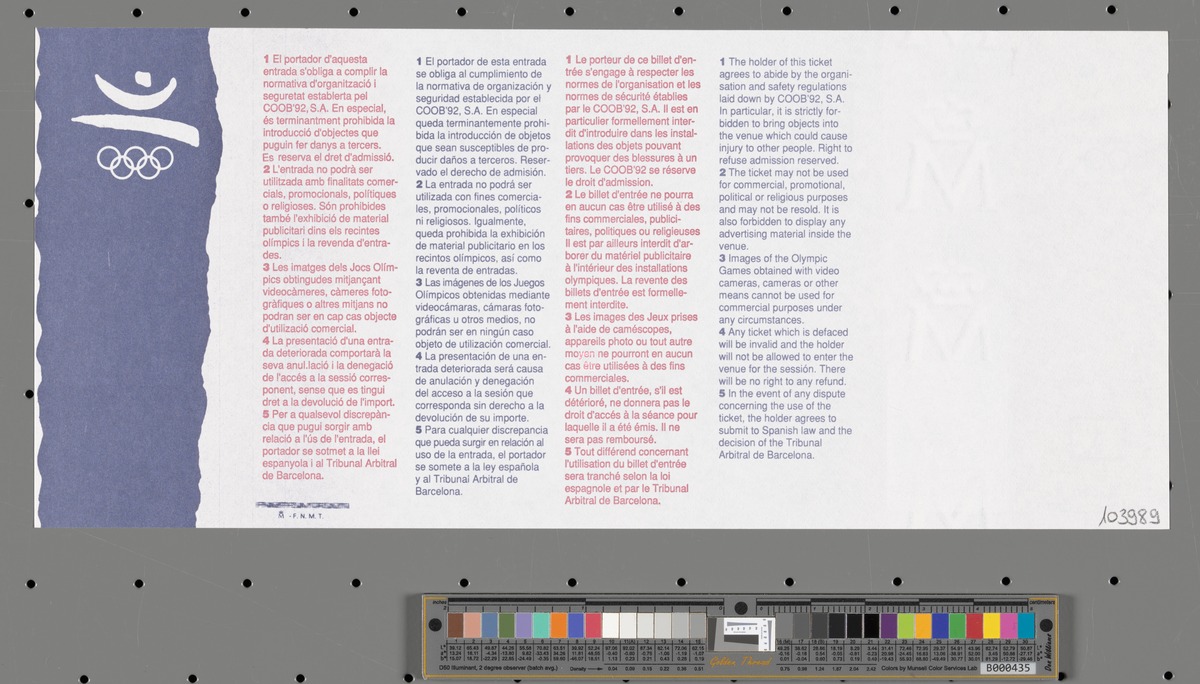 1 El portador d'aquesta
entrada s'obliga a complir la
normativa d'organització i
seguretat establerta pel
COOB'92, S.A. En especial,
és terminantment prohibida la
introducció d'objectes que
puguin fer danys a tercers.
Es reserva el dret d'admissió.
2 L'entrada no podrà ser
utilitzada amb finalitats comer-
cials, promocionals, polítiques
o religioses. Són prohibides
també l'exhibició de material
publicitari dins els recintes
olímpics i la revenda d'entra-
des.
3 Les imatges dels Jocs Olím-
pics obtingudes mitjançant
videocàmeres, càmeres foto-
gràfiques o altres mitjans no
podran ser en cap cas objecte
d'utilizació comercial.
4 La presentació d'una entra-
da deteriorada comportarà la
seva anul.lació i la denegació
de l'accés a la sessió corres-
ponent, sense que es tingui
dret a la devolució de l'import.
5 Per a qualsevol discrepàn-
cia que pugui sorgir amb
relació a l'ús de l'entrada, el
portador se sotmet a la llei
espanyola i al Tribunal Arbitral
de Barcelona.
M -F.N.M.T.
1 El portador de esta entrada
se obliga al cumplimiento de
la normativa de organización y
seguridad establecida por el
COOB'92, S.A. En especial
queda terminantemente prohi-
bida la introducción de objetos
que sean susceptibles de pro-
ducir daños a terceros. Reser-
vado el derecho de admisión.
2 La entrada no podrá ser
utilizada con fines comercia-
les, promocionales, políticos
ni religiosos. Igualmente,
queda prohibida la exhibición
de material publicitario en los
recintos olímpicos, así como
la reventa de entradas.
3 Las imágenes de los Juegos
Olímpicos obtenidas mediante
videocámaras, cámaras foto-
gráficas u otros medios, no
podrán ser en ningún caso
objeto de utilización comercial.
4 La presentación de una en-
trada deteriorada será causa
de anulación y denegación
del acceso a la sesión que
corresponda sin derecho a la
devolución de su importe.
5 Para cualquier discrepancia
que pueda surgir en relación al
uso de la entrada, el portador
se somete a la ley española
y al Tribunal Arbitral de
Barcelona.
1 Le porteur de ce billet d'en-
trée s'engage à respecter les
normes de l'organisation et les
normes de sécurité établies
par le COOB'92, S.A. Il est en
particulier formellement inter-
dit d'introduire dans les instal-
lations des objets pouvant
provoquer des blessures à un
tiers. Le COOB'92 se réserve
le droit d'admission.
2 Le billet d'entrée ne pourra
en aucun cas être utilisé à des
fins commerciales, publici-
taires, politiques ou religieuses
Il est par ailleurs interdit d'ar-
borer du matériel publicitaire
à l'intérieur des installations
olympiques. La revente des
billets d'entrée est formelle-
ment interdite.
3 Les images des Jeux prises
à l'aide de caméscopes,
appareils photo ou tout autre
moyen ne pourront en aucun
cas être utilisées à des fins
commerciales.
4 Un billet d'entrée, s'il est
détérioré, ne donnera pas le
droit d'accés à la séance pour
laquelle il a été émis. Il ne
sera pas remboursé.
5 Tout différend concernant
l'utilisation du billet d'entrée
sera tranché selon la loi
espagnole et par le Tribunal
Arbitral de Barcelona.
1 The holder of this ticket
agrees to abide by the organi-
sation and safety regulations
laid down by COOB'92, S.A.
In particular, it is strictly for-
bidden to bring objects into
the venue which could cause
injury to other people. Right to
refuse admission reserved.
2 The ticket may not be used
for commercial, promotional,
political or religious purposes
and may not be resold. It is
also forbidden to display any
advertising material inside the
venue.
3 Images of the Olympic
Games obtained with video
cameras, cameras or other
means cannot be used for
commercial purposes under
any circumstances.
4 Any ticket which is defaced
will be invalid and the holder
will not be allowed to enter the
venue for the sessión. There
will be no right to any refund.
5 In the event of any dispute
concerning the use of the
ticket, the holder agrees to
submit to Spanish law and the
decision of the Tribunal
Arbitral de Barcelona.
103989
inches
centimeters
Golden Thread
D50 Illuminant, 2 degree observer
Colors by Munsell Color Services Lab
B000435